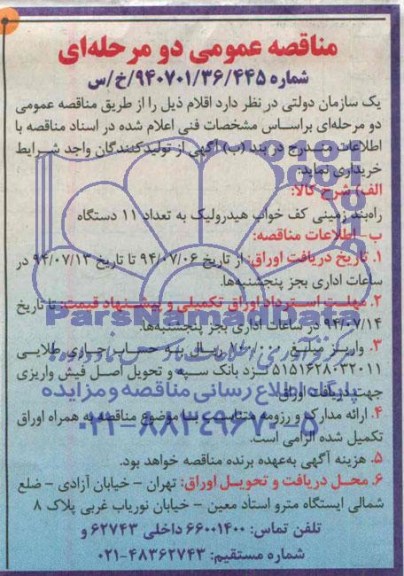 مناقصه عمومی دو مرحله‌ای
شماره ۹۴۰۷۰۱/۳۶/۴۴۵/خ/س
یک سازمان دولتی در نظر دارد اقلام ذیل را از طریق مناقصه عمومی
دو مرحله‌ای براساس مشخصات فنی اعلام شده در اسناد مناقصه با
اطلاعات مندرج در بند (ب) آگهی از تولیدکنندگان واجد شرایط
خریداری نماید:
الف) شرح کالا:
راه‌بند زمینی کف خواب هیدرولیک به تعداد ۱۱ دستگاه
ب- اطلاعات مناقصه:
۱. تاریخ دریافت اوراق: از تاریخ ۹۴/۰۷/۰۶ تا تاریخ ۹۴/۰۷/۱۳ در
ساعات اداری بجز پنجشنبه‌ها.
۲. مهلت استرداد اوراق تکمیلی و پیشنهاد قیمت: تا تاریخ
۹۴/۰۷/۱۴ در ساعات اداری بجز پنجشنبه‌ها.
ParsNamadData
۳. واریز مبلغ ریال به حساب جاری طلایی
۵۱۵۱۶۲۸۰۳۲۰۱۱ نزد بانک سپه و تحویل اصل فیش واریزی
جهت دریافت اوراق.
پایگاه اطلاع رسانی مناقصه و مزایده
۴. ارائه مدارک و رزومه متناسب با موضوع مناقصه به همراه اوراق
۰۲۱-۸۸۳۴۹۶۷۰-۵
تکمیل شده الزامی است.
۵. هزینه آگهی به‌عهده برنده مناقصه خواهد بود.
۶. محل دریافت و تحویل اوراق: تهران - خیابان آزادی - ضلع
شمالی ایستگاه مترو استاد معین - خیابان نوریاب غربی پلاک ۸
تلفن تماس: ۶۶۰۰۱۴۰۰ داخلی ۶۲۷۴۳ و
شماره مستقیم: ۴۸۳۶۲۷۴۳-۰۲۱